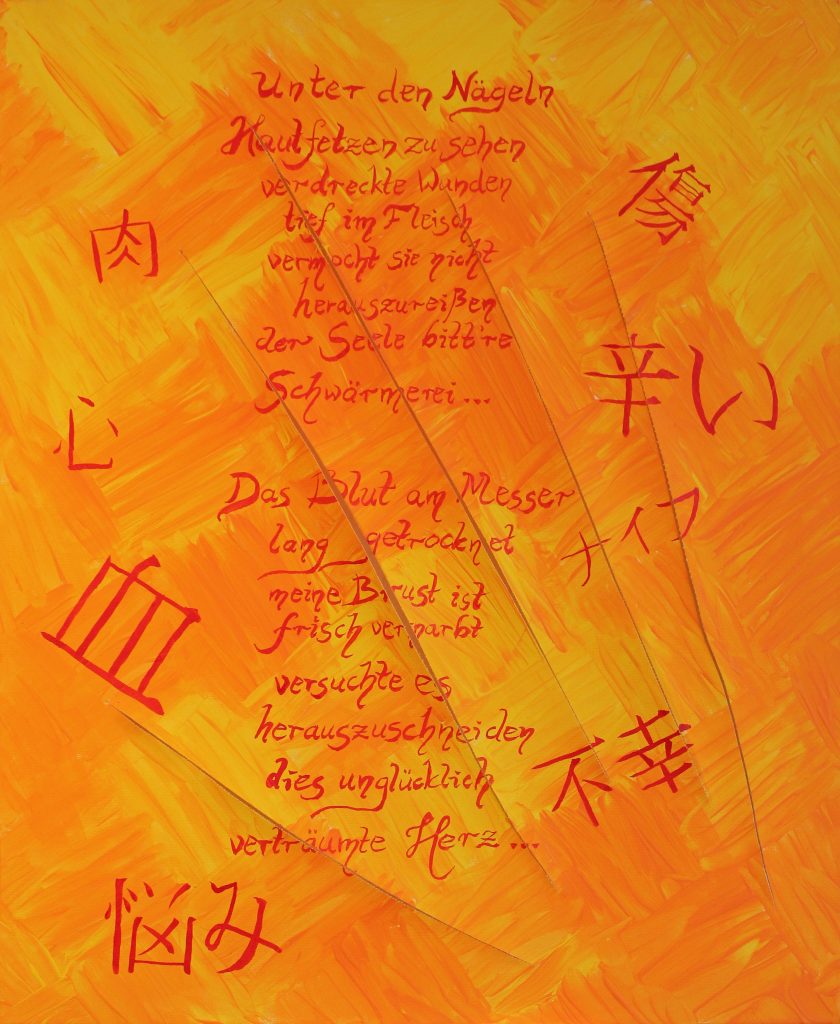 Unter den Nägeln
Hautfetzen zu sehen
verdreckte Wunden
tief im Fleisch
vermocht sie nicht
herauszureißen
der Seele bitt're
Schwärmerei...
Das Blut am Messer
lang getrocknet
meine Brust ist
frisch vernarbt
versuchte es
herauszuschneiden
dies unglücklich
verträumte Herz...
肉
心
血
悩み
傷
辛い
ナイフ
不幸